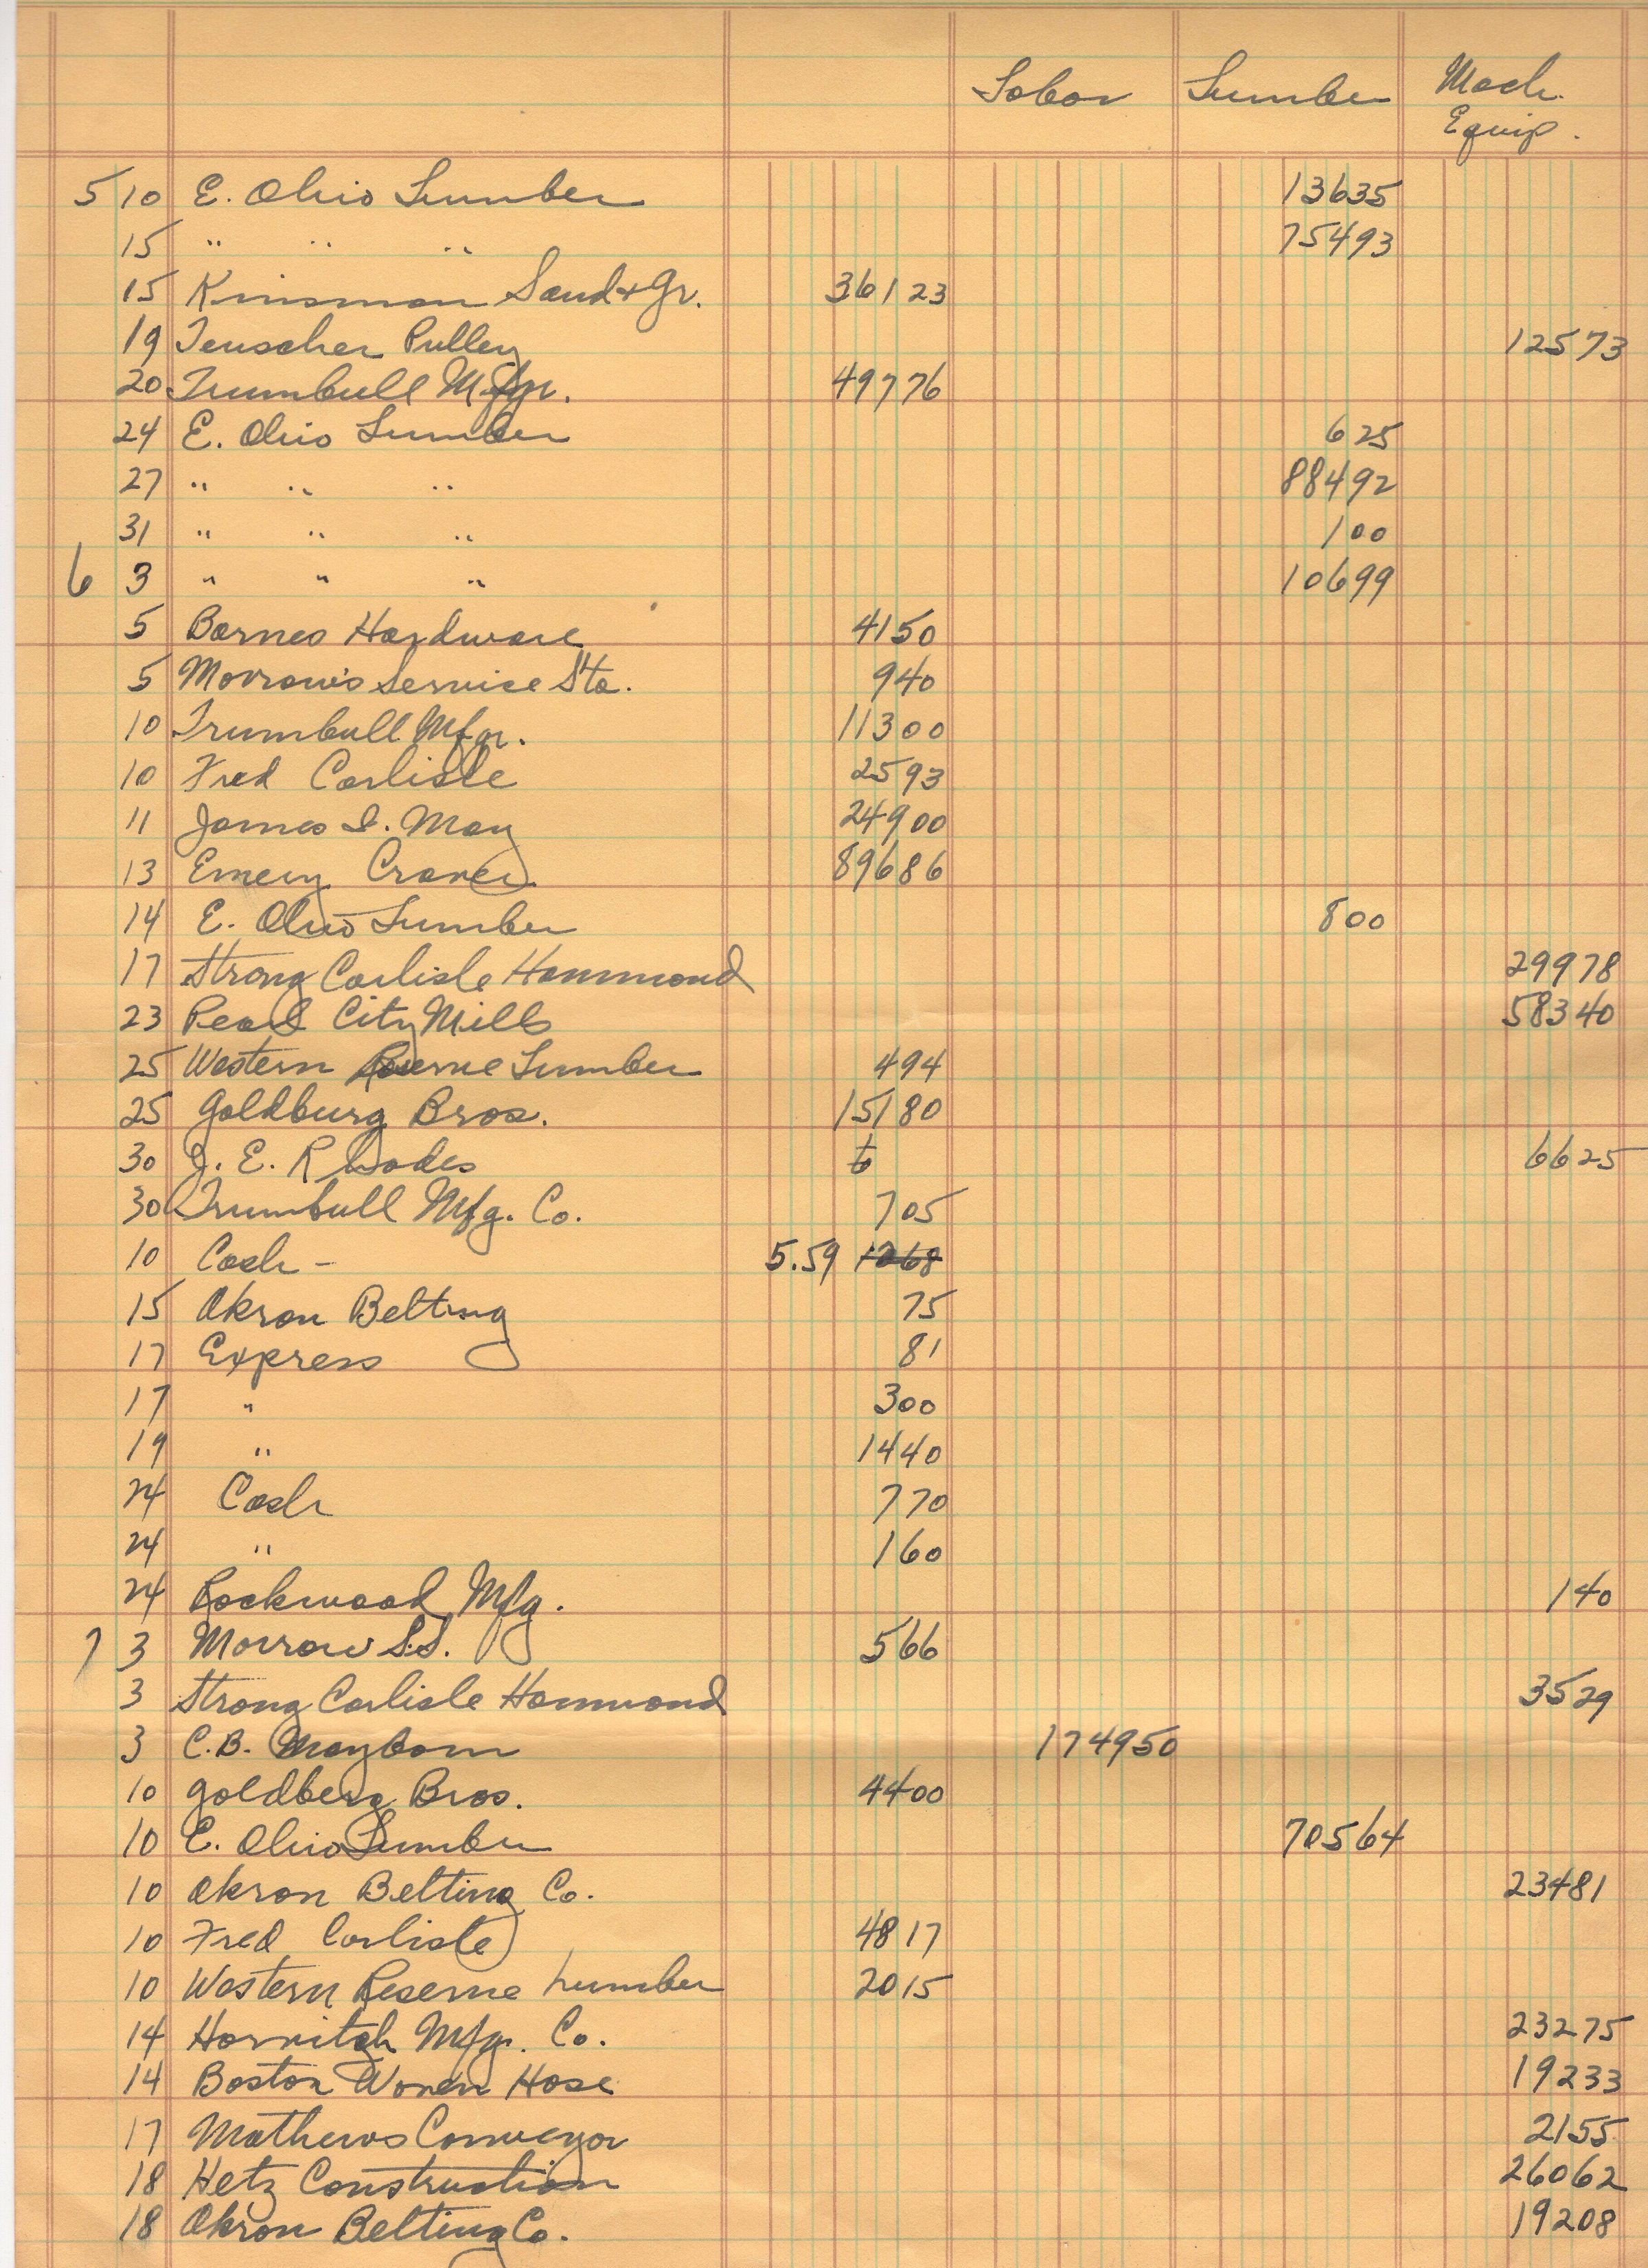 Labor Lumber Mach.
Equip.
5 10 E. Ohio Lumber 13635
15 " " " 75493
15 Kinsman Sand + Gr. 36123
19 Teuscher Pulley 12573
20 Trumbull Mfgr. 49776
24 E. Ohio Lumber 625
27 " " " 88492
31 " " " 100
6 3 " " " 10699
5 Barnes Hardware 4150
5 Morrow's Service Sta. 940
10 Trumbull Mfgr. 11300
10 Fred Carlisle 2593
11 James L. May 24900
13 Emery Craner 89686
14 E. Ohio Lumber 800
17 Strong Carlisle Hammond 29978
23 Pearl City Mills 58340
25 Western Reserve Lumber 494
25 Goldburg Bros. 15180
30 J. E. Rhodes 6 6625
30 Trumbull Mfg. Co. 705
10 Cash - 5.59 1268
15 Akron Belting 75
17 Express 81
17 " 300
19 " 1440
24 Cash 770
24 " 160
24 Rockwood Mfg. 140
7 3 Morrow S.S. 566
3 Strong Carlisle Hammond 3529
3 C.B. Mayborn 174950
10 Goldberg Bros. 4400
10 E. Ohio Lumber 70564
10 Akron Belting Co. 23481
10 Fred Carlisle 4817
10 Western Reserve Lumber 2015
14 Mfgr. Co. 23275
14 Boston Woven Hose 19233
17 Mathews Conveyor 2155
18 Hetz Construction 26062
18 Akron Belting Co. 19208